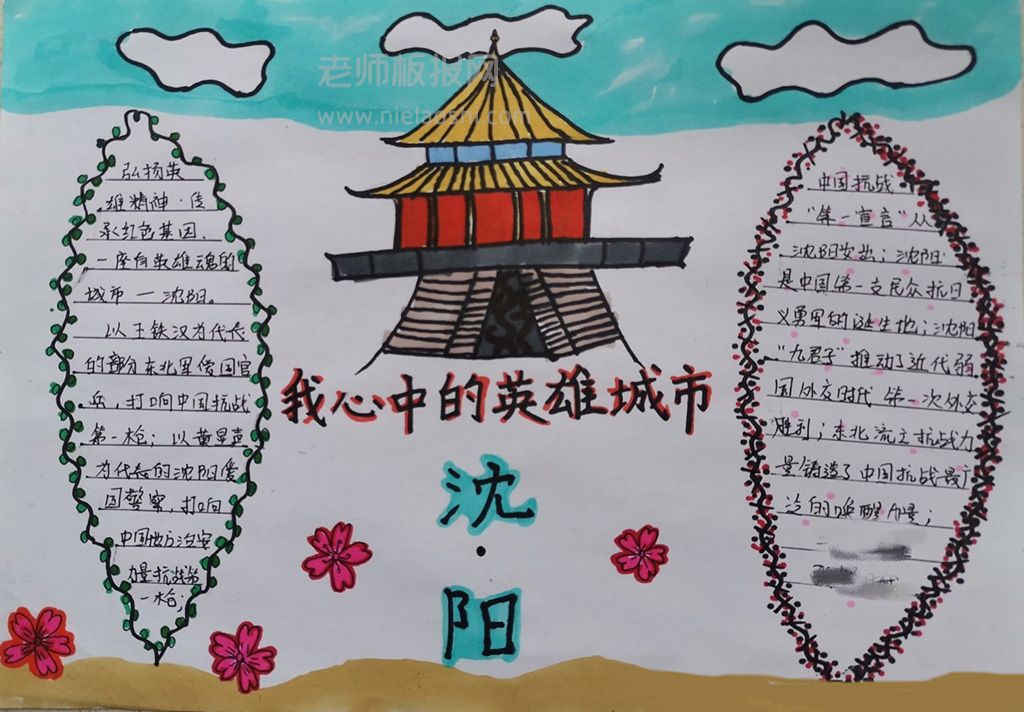 老师板报网
www.nielaoshi.com
弘扬英
雄精神·传
承红色基因、
一座有英雄魂的
城市一沈阳。
以王铁汉为代表
的部分东北军爱国官
兵，打响中国抗战
第一枪；以黄显声
为代表的沈阳爱
国警察，打响
中国地方治安
力量抗战第
一枪；
我心中的英雄城市
沈
·
阳
中国抗战
“第一宣言”从
沈阳发出；沈阳
是中国第一支民众抗日
义勇军的诞生地；沈阳
“九君子”推动了近代弱
国外交时代第一次外交
胜利；东北流亡抗战力
量铸造了中国抗战最广
泛的唤醒力量；